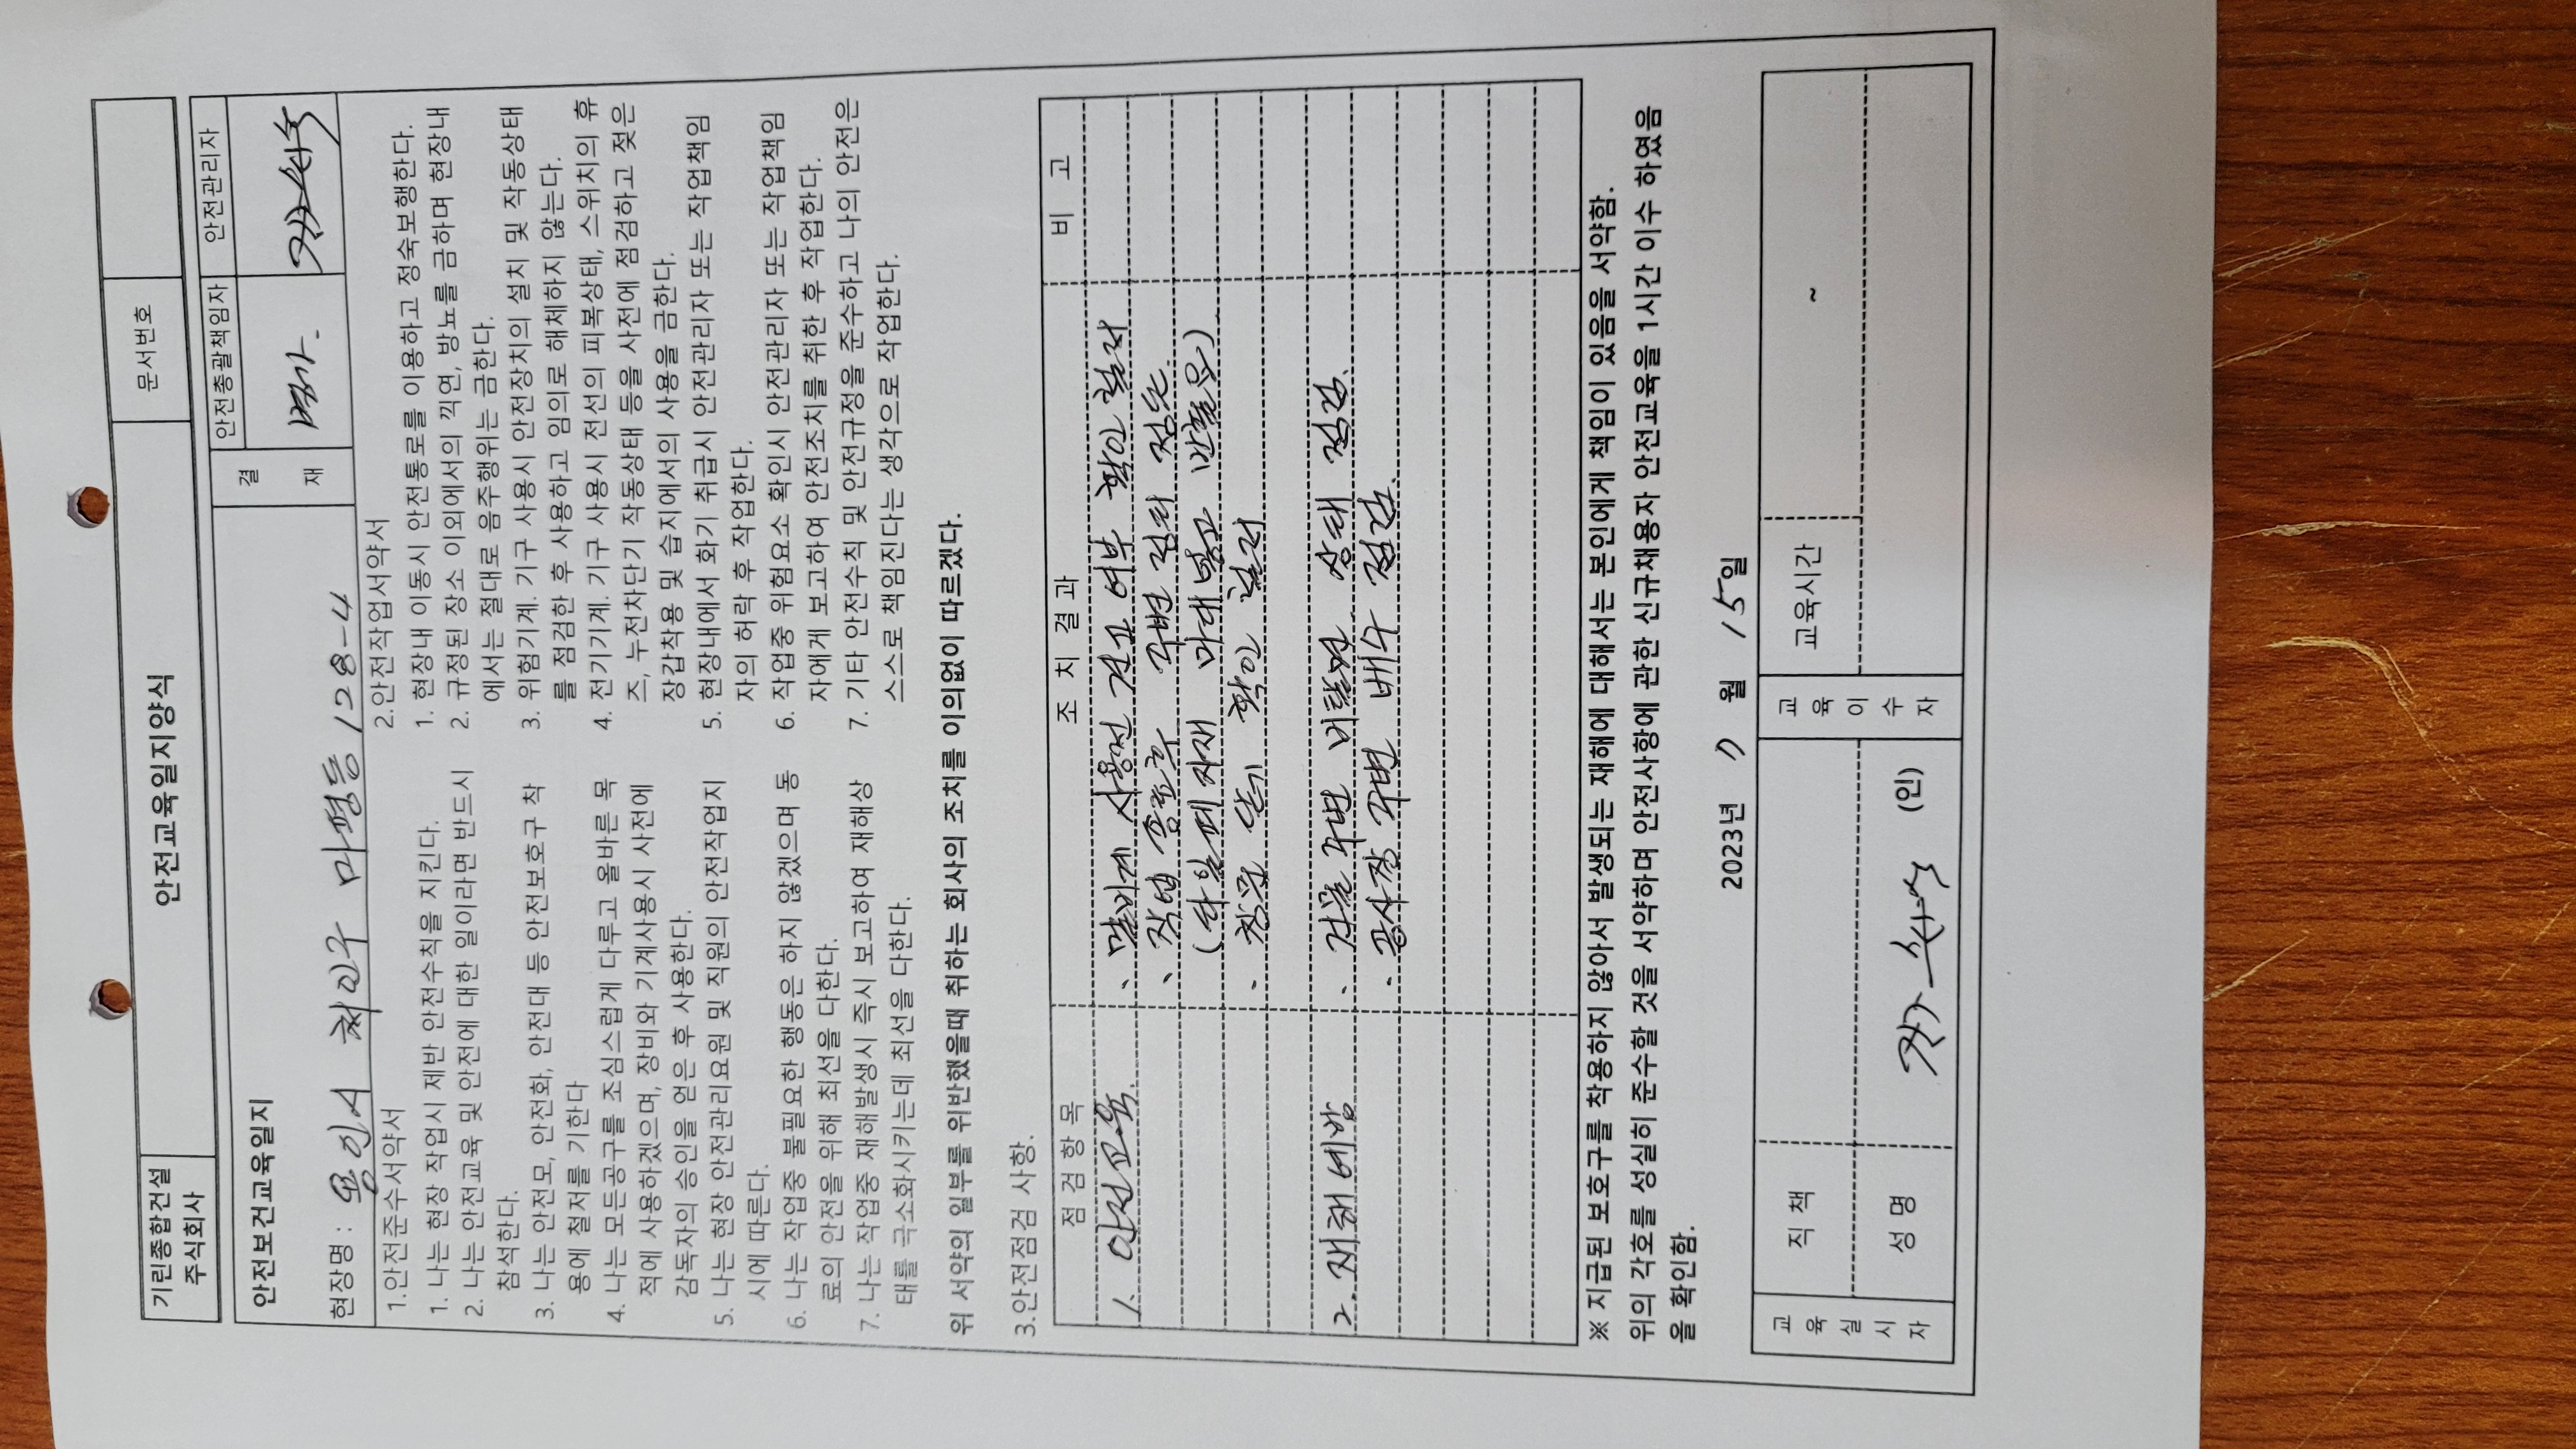 기린종합건설
주식회사
안전교육일지양식
문서번호
안전보건교육일지
결
재
안전총괄책임자
안전관리자
현장명 : 용인시 처인구 마평동 128-4
1.안전준수서약서
1. 나는 현장 작업시 제반 안전수칙을 지킨다.
2. 나는 안전교육 및 안전에 대한 일이라면 반드시
참석한다.
3. 나는 안전모, 안전화, 안전대 등 안전보호구 착
용에 철저를 기한다
4. 나는 모든공구를 조심스럽게 다루고 올바른 목
적에 사용하겠으며, 장비와 기계사용시 사전에
감독자의 승인을 얻은 후 사용한다.
5. 나는 현장 안전관리요원 및 직원의 안전작업지
시에 따른다.
6. 나는 작업중 불필요한 행동은 하지 않겠으며 동
료의 안전을 위해 최선을 다한다.
7. 나는 작업중 재해발생시 즉시 보고하여 재해상
태를 극소화시키는데 최선을 다한다.
2.안전작업서약서
1. 현장내 이동시 안전통로를 이용하고 정숙보행한다.
2. 규정된 장소 이외에서의 끽연, 방뇨를 금하며 현장내
에서는 절대로 음주행위는 금한다.
3. 위험기계. 기구 사용시 안전장치의 설치 및 작동상태
를 점검한 후 사용하고 임의로 해체하지 않는다.
4. 전기기계. 기구 사용시 전선의 피복상태, 스위치의 휴
즈, 누전차단기 작동상태 등을 사전에 점검하고 젖은
장갑착용 및 습지에서의 사용을 금한다.
5. 현장내에서 화기 취급시 안전관리자 또는 작업책임
자의 허락 후 작업한다.
6. 작업중 위험요소 확인시 안전관리자 또는 작업책임
자에게 보고하여 안전조치를 취한 후 작업한다.
7. 기타 안전수칙 및 안전규정을 준수하고 나의 안전은
스스로 책임진다는 생각으로 작업한다.
위 서약의 일부를 위반했을때 취하는 회사의 조치를 이의없이 따르겠다.
3.안전점검 사항.
점 검 항 목
조 치 결 과
비 고
1. 안전교육.
· 말비계 사용전 견고 여부 확인 철저
· 작업 종료후 주변 정리 정돈.
(타일폐자재 마대 넣고 반출요)
· 창문 닫기 확인 철저
2. 재해예방
· 건물 주변 비탈면 상태 점검.
· 공사장 주변 배수 점검.
※ 지급된 보호구를 착용하지 않아서 발생되는 재해에 대해서는 본인에게 책임이 있음을 서약함.
위의 각호를 성실히 준수할 것을 서약하며 안전사항에 관한 신규채용자 안전교육을 1시간 이수 하였음
을 확인함.
2023년 7 월 15일
교
육
실
시
자
직 책
성 명
(인)
교
육
이
수
자
교육시간
~